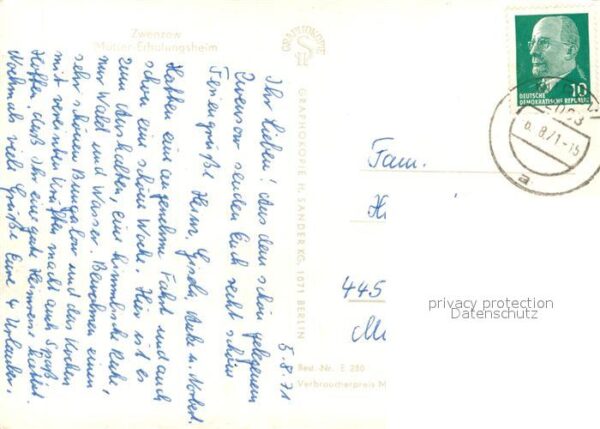 Zwenzow
Mütter-Erholungsheim
5.8.71
Ihr Lieben! Aus dem schön gelegenen
Zwenzow senden Euch recht schöne
Feriengrüße Heinz, Gisela, u. Norbert.
Hatten eine angenehme Fahrt und auch
schon eine schöne Woche. Hier ist es
zum Aushalten, eine himmlische Ruhe,
nur Wald und Wasser. Bewohnen einen
sehr schönen Bungalow und das Kochen
mit vereinten Kräften macht auch Spaß.
Hoffen, daß Ihr eine gute Heimreise hattet.
Nochmals viele Grüße Eure 4 Urlauber.
GRAPHOKOPIE
GRAPHOKOPIE H. SANDER KG, 1071 BERLIN
Best.-Nr. E 250
Verbraucherpreis M
10
DEUTSCHE
DEMOKRATISCHE REPUBLIK
6.8.71-15
a
Fam.
H
445
privacy protection
Datenschutz